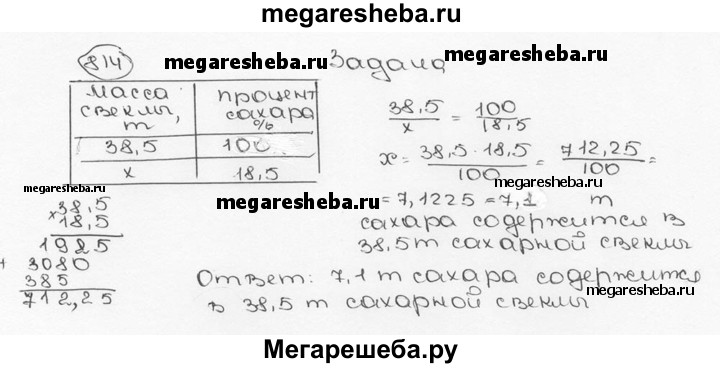 megaresheba.ru
814 megaresheba.ru Задача megaresheba.ru
Масса свеклы, т | процент сахара %
38,5 | 100
x | 18,5
38,5/x = 100/18,5
x = 38,5·18,5/100 = 712,25/100 =
= 7,1225 = 7,1 т
сахара содержится в
38,5 т сахарной свеклы
megaresheba.ru
megaresheba.ru
megaresheba.ru
38,5
× 18,5
1925
+ 3080
385
712,25
Ответ: 7,1 т сахара содержится
в 38,5 т сахарной свеклы
megaresheba.ru
Мегарешеба.ру